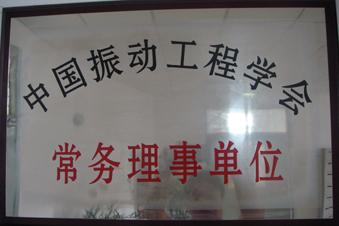 中国振动工程学会
常务理事单位